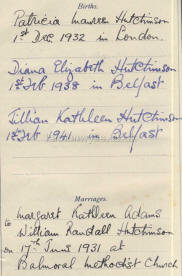 Births.
Patricia Maureen Hutchinson
1st Dec 1932 in London.
Diana Elizabeth Hutchinson
1st Feb 1938 in Belfast
Jillian Kathleen Hutchinson
1st Feb 1941 in Belfast
Marriages.
Margaret Kathleen Adams
to William Randall Hutchinson
on 17th June 1931 at
Balmoral Methodist Church